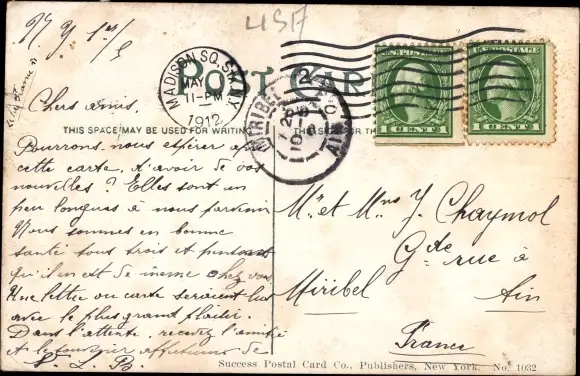 USA
N.Y. 1er/5
MADISON SQ. STA. NY
MAY
11-PM
1912
2
POST CARD
MIRIBEL
AIN
THIS SPACE MAY BE USED FOR WRITING
THE
FOR TH
Chers amis.
Pourrons nous espérer après
cette carte, d'avoir de vos
nouvelles ? Elles sont un
peu longues à nous parvenir
Nous sommes en bonne
santé tous trois et pensons
qu'il en est de meme chez vous
Une lettre ou carte seraient lus
avec le plus grand plaisir.
Dans l'attente, recevez l'amitié
et le
affectueux de
U.S. POSTAGE
1 CENT 1
U.S. POSTAGE
1 CENT 1
Mr et Mme J. Chaymol
Gde rue à
Miribel Ain
France
Success Postal Card Co., Publishers, New York. No. 1032